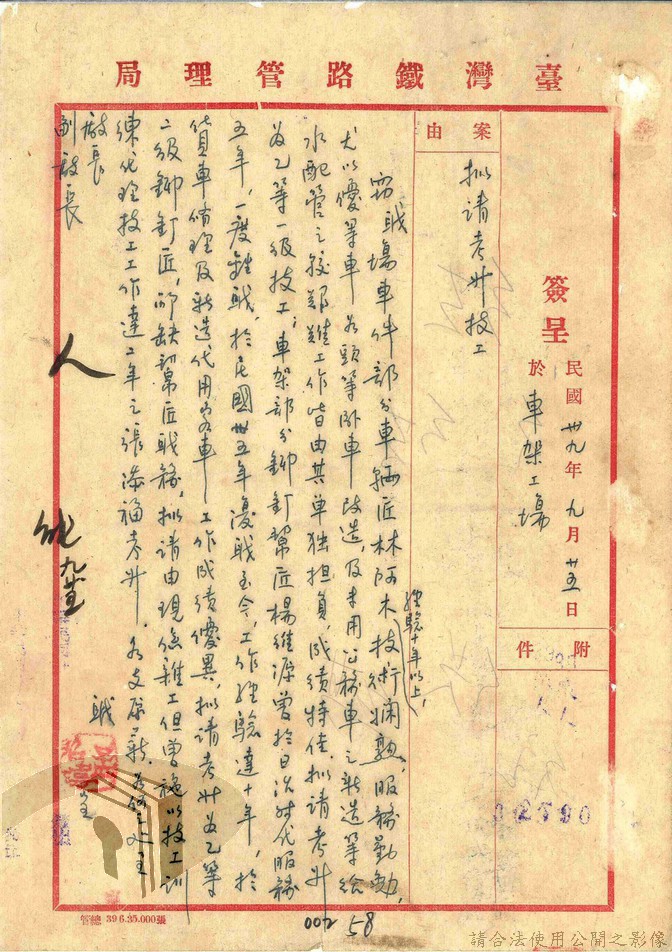 臺灣鐵路管理局
簽呈
民國卅九年九月廿五日
於車架工場
附件
案由
擬請考升技工
竊職場車件部分車輛匠林阿木技術嫻熟，服務勤勉，
經驗十年以上，
尤以優等車為頭等卧車改造，及專用公務車之新造等給
水配管之較艱難工作皆由其單独担負，成績特佳，擬請考升
為乙等一級技工；車架部分鉚釘幫匠楊維源曾於日治時代服務
五年，一度離職，於民國卅五年復職至今，工作經驗達十年，於
貨車修理及新造代用客車工作成績優異，擬請考升為乙等
二級鉚釘匠，所缺幫匠職務，擬請由現係雜工但曾施以技工訓
練代理技工工作達二年之張添福考升，各支原薪。為何之處
廠長
副廠長
職
呈
人
32790
管總 39 6.25.000張
002 58
請合法使用公開之影像